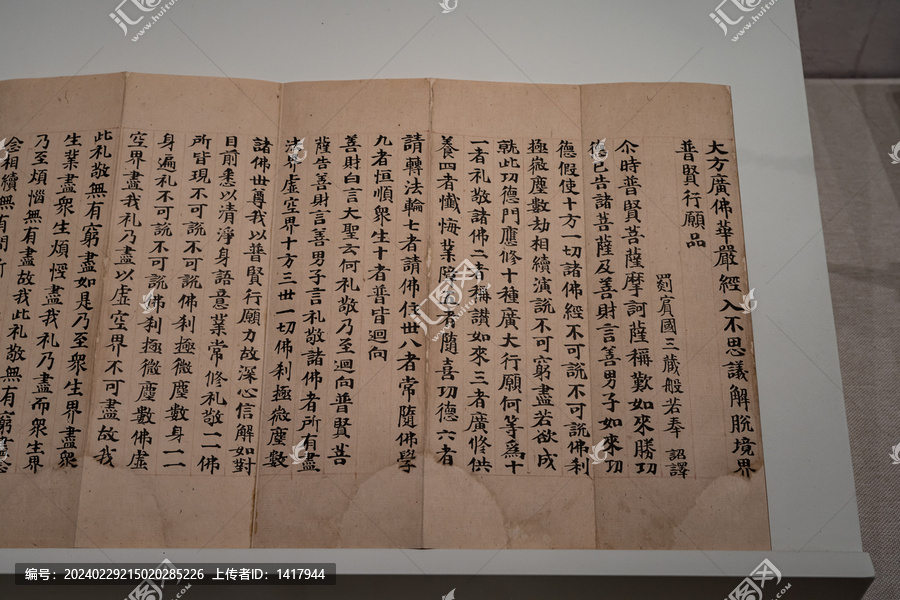 大方廣佛華嚴經入不思議解脫境界
普賢行願品
罽賓國三藏般若奉 詔譯
尒時普賢菩薩摩訶薩稱歎如來勝功
德已告諸菩薩及善財言善男子如來功
德假使十方一切諸佛經不可說不可說佛刹
極微塵數劫相續演說不可窮盡若欲成
就此功德門應修十種廣大行願何等爲十
一者礼敬諸佛二者稱讃如來三者廣修供
養四者懺悔業障五者隨喜功德六者
請轉法輪七者請佛住世八者常隨佛學
九者恒順衆生十者普皆迴向
善財白言大聖云何礼敬乃至迴向普賢菩
薩告善財言善男子言礼敬諸佛者所有盡
法界虛空界十方三世一切佛刹極微塵數
諸佛世尊我以普賢行願力故深心信解如對
目前悉以清淨身語意業常修礼敬一一佛
所皆現不可說不可說佛刹極微塵數身一一
身遍礼不可說不可說佛刹極微塵數佛虛
空界盡我礼乃盡以虛空界不可盡故我
此礼敬無有窮盡如是乃至衆生界盡衆
生業盡衆生煩惱盡我礼乃盡而衆生界
乃至煩惱無有盡故我此礼敬無有窮盡
念相續無有間
编号：20240229215020285226 上传者ID：1417944
汇图网
www.huitu.com